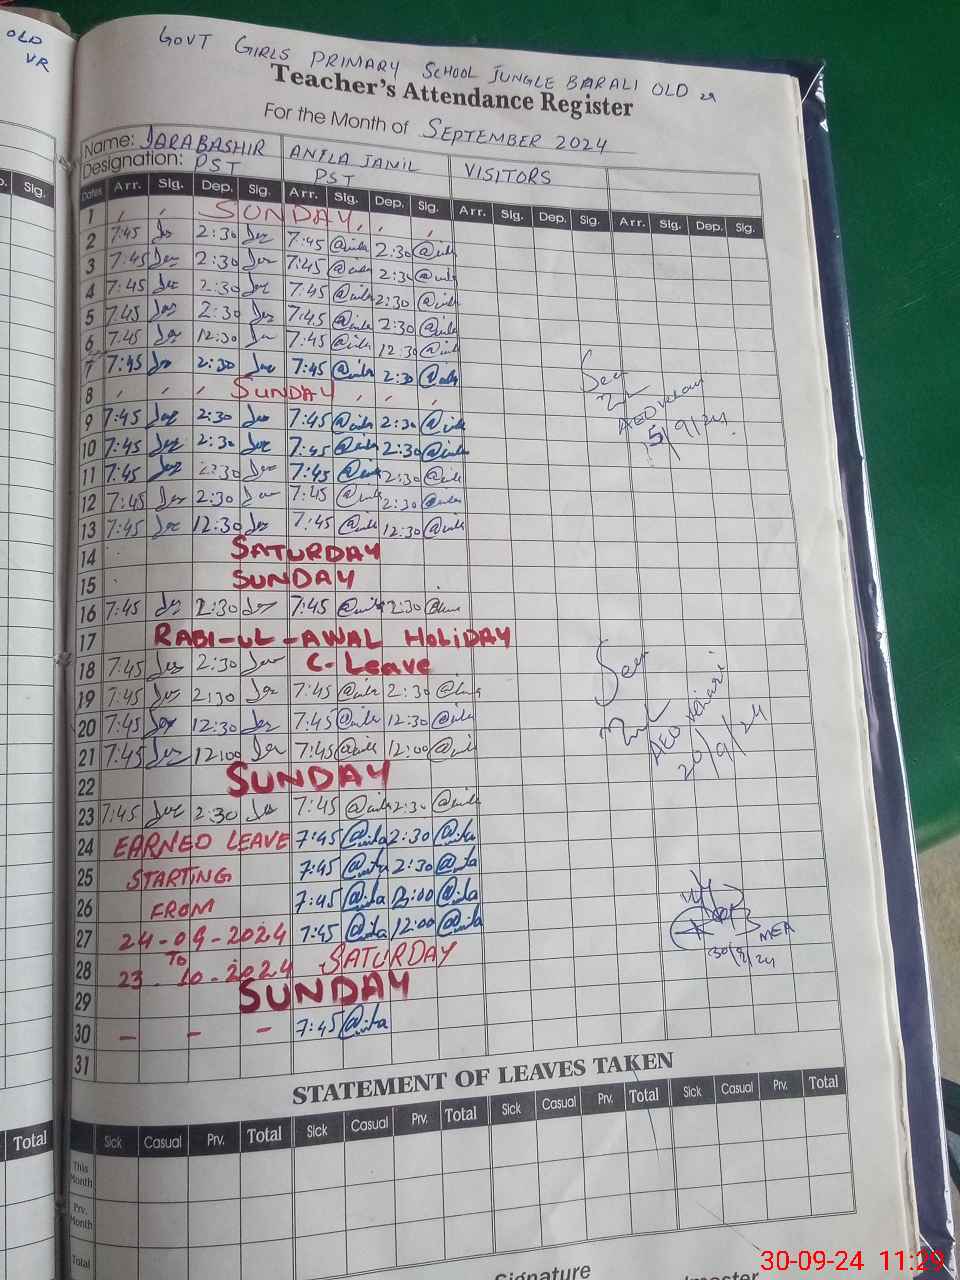 OLD
VR
GOVT GIRLS PRIMARY SCHOOL JUNGLE BARALI OLD
Teacher's Attendance Register
For the Month of SEPTEMBER 2024
Name: ZARA BASHIR ANILA JAMIL VISITORS
Designation: PST PST
Sig. Dates Arr. Sig. Dep. Sig. Arr. Sig. Dep. Sig. Arr. Sig. Dep. Sig. Arr. Sig. Dep. Sig.
1 SUNDAY
2 7:45 2:30 7:45 2:30
3 7:45 2:30 7:45 2:30
4 7:45 2:30 7:45 2:30
5 7:45 2:30 7:45 2:30
6 7:45 12:30 7:45 12:30
7 7:45 2:30 7:45 2:30
8 SUNDAY
9 7:45 2:30 7:45 2:30
10 7:45 2:30 7:45 2:30
11 7:45 2:30 7:45 2:30
12 7:45 2:30 7:45 2:30
13 7:45 12:30 7:45 12:30
14 SATURDAY
15 SUNDAY
16 7:45 2:30 7:45 2:30
17 RABI-UL-AWAL HOLIDAY
18 7:45 2:30 C-Leave
19 7:45 2:30 7:45 2:30
20 7:45 12:30 7:45 12:30
21 7:45 12:00 7:45 12:00
22 SUNDAY
23 7:45 2:30 7:45 2:30
24 EARNED LEAVE 7:45 2:30
25 STARTING 7:45 2:30
26 FROM 7:45 2:00
27 24-09-2024 7:45 12:00
TO
28 23-10-2024 SATURDAY
29 SUNDAY
30 - - - 7:45
31
Seen
AEO Vehari
5/9/24
Seen
AEO Vehari
20/9/24
MEA
30/9/24
STATEMENT OF LEAVES TAKEN
Total Sick Casual Prv. Total Sick Casual Prv. Total Sick Casual Prv. Total Sick Casual Prv. Total
This Month
Prv. Month
Total
Signature
30-09-24 11:29